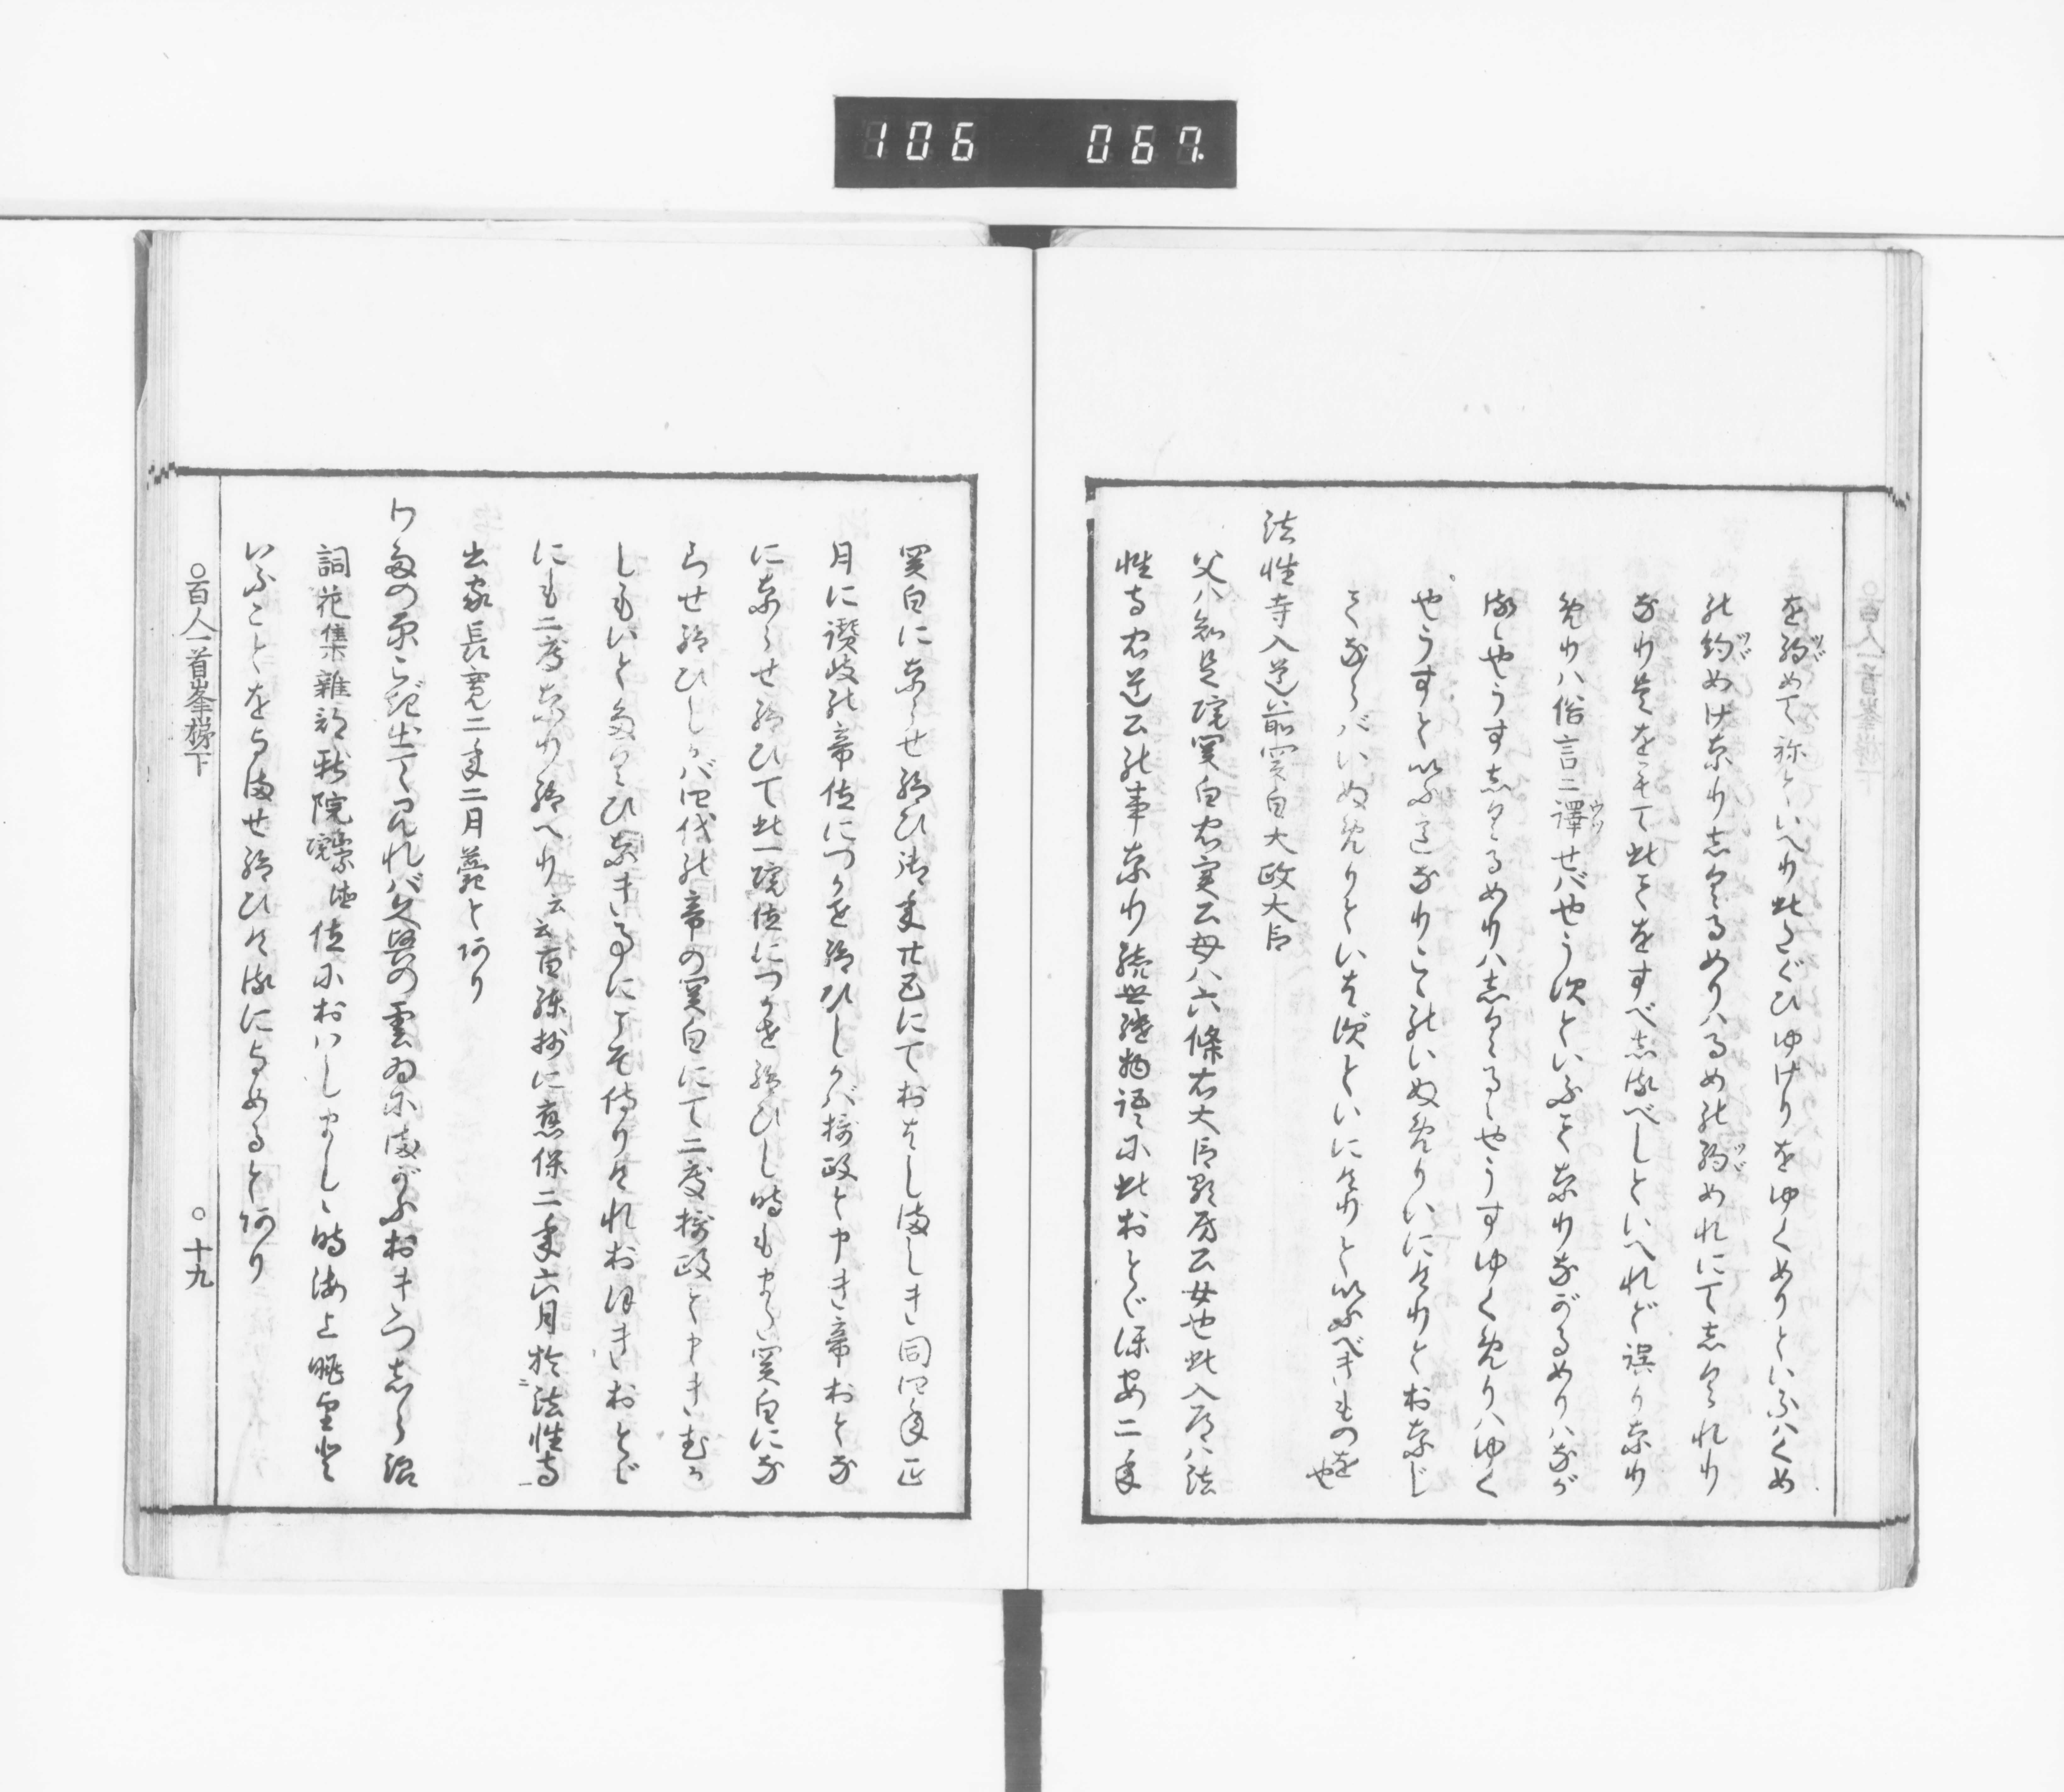 106 067.
を約めて称といへり此たぐひゆけりをゆくめりといふハくめ
の約めけなり志るめりハるめの約めれにて志られり
なり是を以て此てをすべ志るべしといへれど誤りなり
めりハ俗言ニ譯せバやう次といふことなりながるめりハなが
るゝやうす志らるめりハ志らるゝやうすゆくめりハゆく
やうすといふ意なりこゝのいぬめりいにけりとおなじ
てならバいぬめりといはずといにけりといふべきものをや
法性寺入道前関白大政大臣
父ハ知足院関白忠実公母ハ六條右大臣顕房公女也此入道ハ法
性寺忠道公の事なり続世継物語に此おとゞ保安二年
関白にならせ給ひ御年廿五にておはしましき同四年正
月に讃岐の帝位につかせ給ひしかバ摂政と申き帝おとな
にならせ給ひて此一院位につかせ給ひし時もまた関白にな
らせ給ひしかバ四代の帝の関白にて二度摂政と申きむか
しもいとたぐひなき事にこそ侍りけれおほきおとゞ
にも二度なり給へり云々百練抄に應保二年六月於法性寺
出家長寛二年二月薨とあり
わたの原こぎ出て見れバ久堅の雲ゐにまがふおきつ志ら浪
詞花集雑部新院崇徳院位におハしましゝ時海上眺望と
いふことをよませ給ひけるによめるとあり
○百人一首峯梯下
○十九